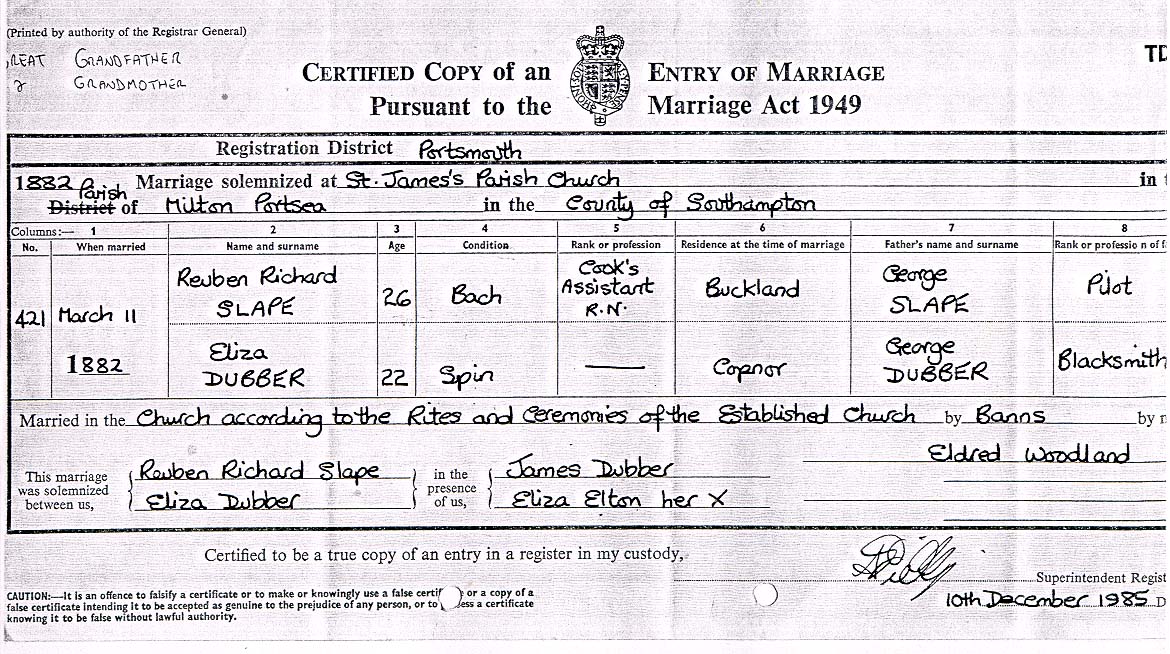 (Printed by authority of the Registrar General)
REAT GRANDFATHER
& GRANDMOTHER
CERTIFIED COPY of an ENTRY OF MARRIAGE
Pursuant to the Marriage Act 1949
TD
Registration District Portsmouth
1882 Marriage solemnized at St. James's Parish Church in
Parish
District of Milton Portsea in the County of Southampton
Columns:— 1 2 3 4 5 6 7 8
No. When married Name and surname Age Condition Rank or profession Residence at the time of marriage Father's name and surname Rank or profession of f
421 March 11 1882 Reuben Richard SLAPE 26 Bach Cook's Assistant R.N. Buckland George SLAPE Pilot
Eliza DUBBER 22 Spin —— Copnor George DUBBER Blacksmith
Married in the Church according to the Rites and Ceremonies of the Established Church by Banns by
Eldred Woodland
This marriage was solemnized between us, Reuben Richard Slape in the presence of us, James Dubber
Eliza Dubber Eliza Elton her X
Certified to be a true copy of an entry in a register in my custody,
Superintendent Regist
10th December 1985 D
CAUTION:—It is an offence to falsify a certificate or to make or knowingly use a false certif or a copy of a
false certificate intending it to be accepted as genuine to the prejudice of any person, or to ess a certificate
knowing it to be false without lawful authority.